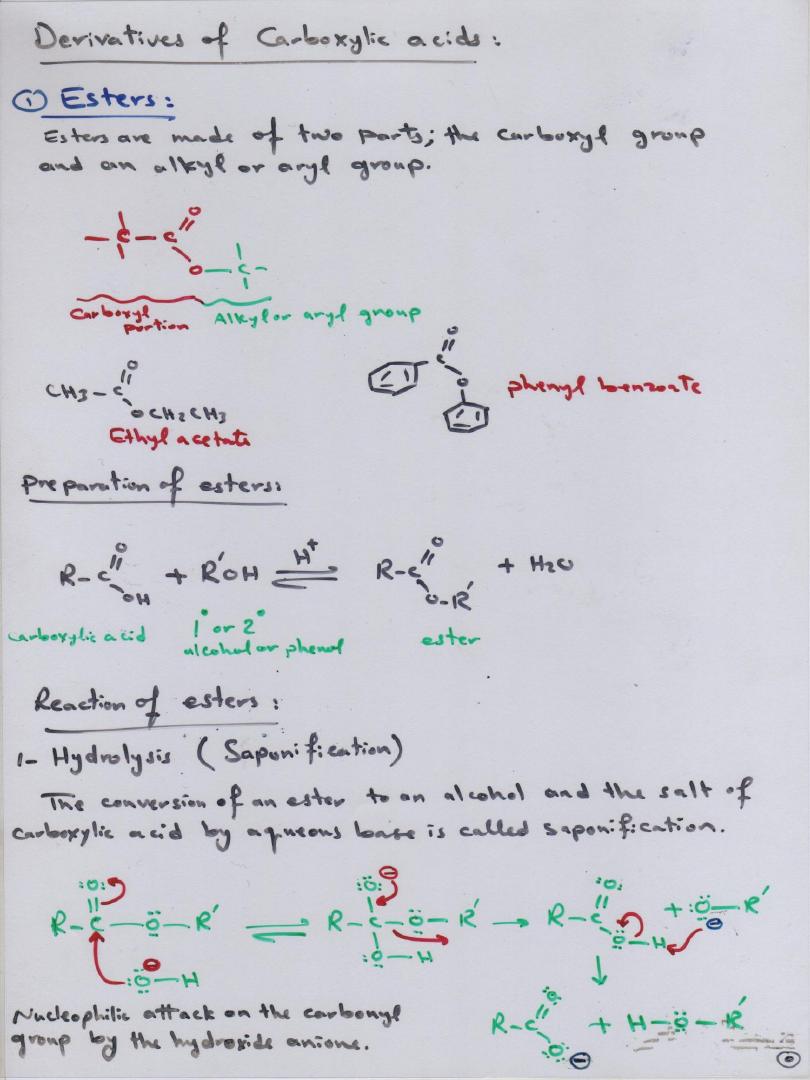 Derivatives of Carboxylic acids:
① Esters:
Esters are made of two parts; the carboxyl group
and an alkyl or aryl group.
O
- C - C
O - C -
Carboxyl portion
Alkyl or aryl group
O
CH3 - C
OCH2CH3
Ethyl acetate
O
C
O
phenyl benzoate
Preparation of esters:
O O
R-C + R'OH H+ ⇌ R-C + H2O
OH O-R'
carboxylic acid 1° or 2° alcohol or phenol ester
Reaction of esters:
1- Hydrolysis (Saponification)
The conversion of an ester to an alcohol and the salt of
carboxylic acid by aqueous base is called saponification.
:O: :O: ⊖ :O:
R-C-O-R' ⇌ R-C-O-R' → R-C + :O-R' ⊖
⊖ :O-H :O-H O-H
↓
Nucleophilic attack on the carbonyl
group by the hydroxide anione.
O
R-C + H-O-R'
O ⊖